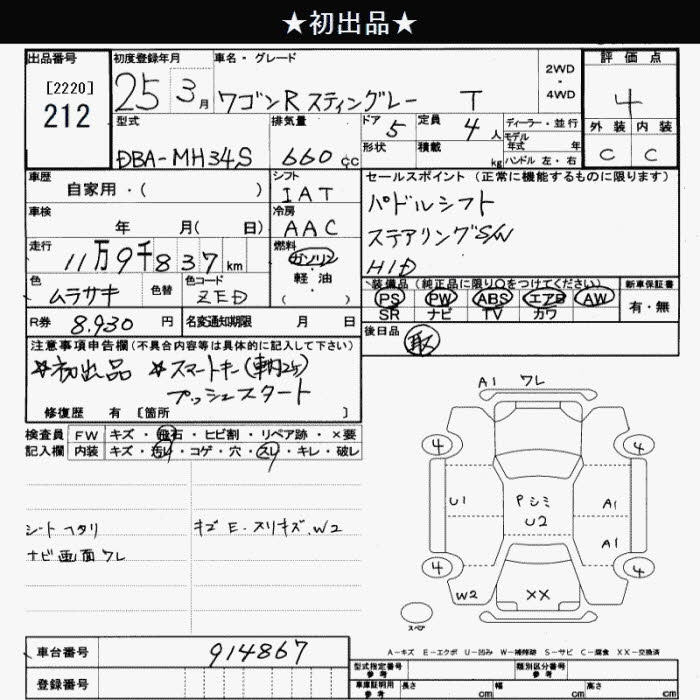 ★初出品★
出品番号
[2220]
212
初度登録年月
25 3月
車名・グレード
ワゴンR スティングレー T
2WD
・
4WD
評価点
4
外装 内装
C C
型式
DBA-MH34S
排気量
660 cc
ドア 5
形状
定員 4人
積載 kg
ディーラー・並行
モデル
年式 年
ハンドル 左・右
車歴
自家用・( )
シフト
IAT
セールスポイント (正常に機能するものに限ります)
パドルシフト
ステアリングS/W
HID
車検
年 月( 日)
冷房
AAC
走行
11万9千837km
燃料
ガソリン
軽油
( )
色
ムラサキ
色替
色コード
ZED
装備品(純正品に限り○をつけてください)
PS PW ABS エアB AW
SR ナビ TV カワ
新車保証書
有・無
R券 8,930 円
名変通知期限 月 日
後日品
取
注意事項申告欄(不具合内容等は具体的に記入して下さい)
☆初出品 ☆スマートキー(車内2ケ)
プッシュスタート
修復歴 有 [箇所 ]
検査員
記入欄
FW キズ・飛石・ヒビ割・リペア跡・×要
内装 キズ・汚れ・コゲ・穴・スレ・キレ・破レ
シート ヘタリ
ナビ画面 ワレ
キズ E・スリキズ、W2
A1 ワレ
4 4
U1 Pシミ A1
U2
A1
4 4
W2 XX
スペア
A−キズ E−エクボ U−凹み W−補修跡 S−サビ C−腐食 XX−交換済
車台番号 914867
登録番号
型式指定番号
参考
類別区分番号
参考
車庫証明用
参考
長さ cm 幅 cm 高さ cm